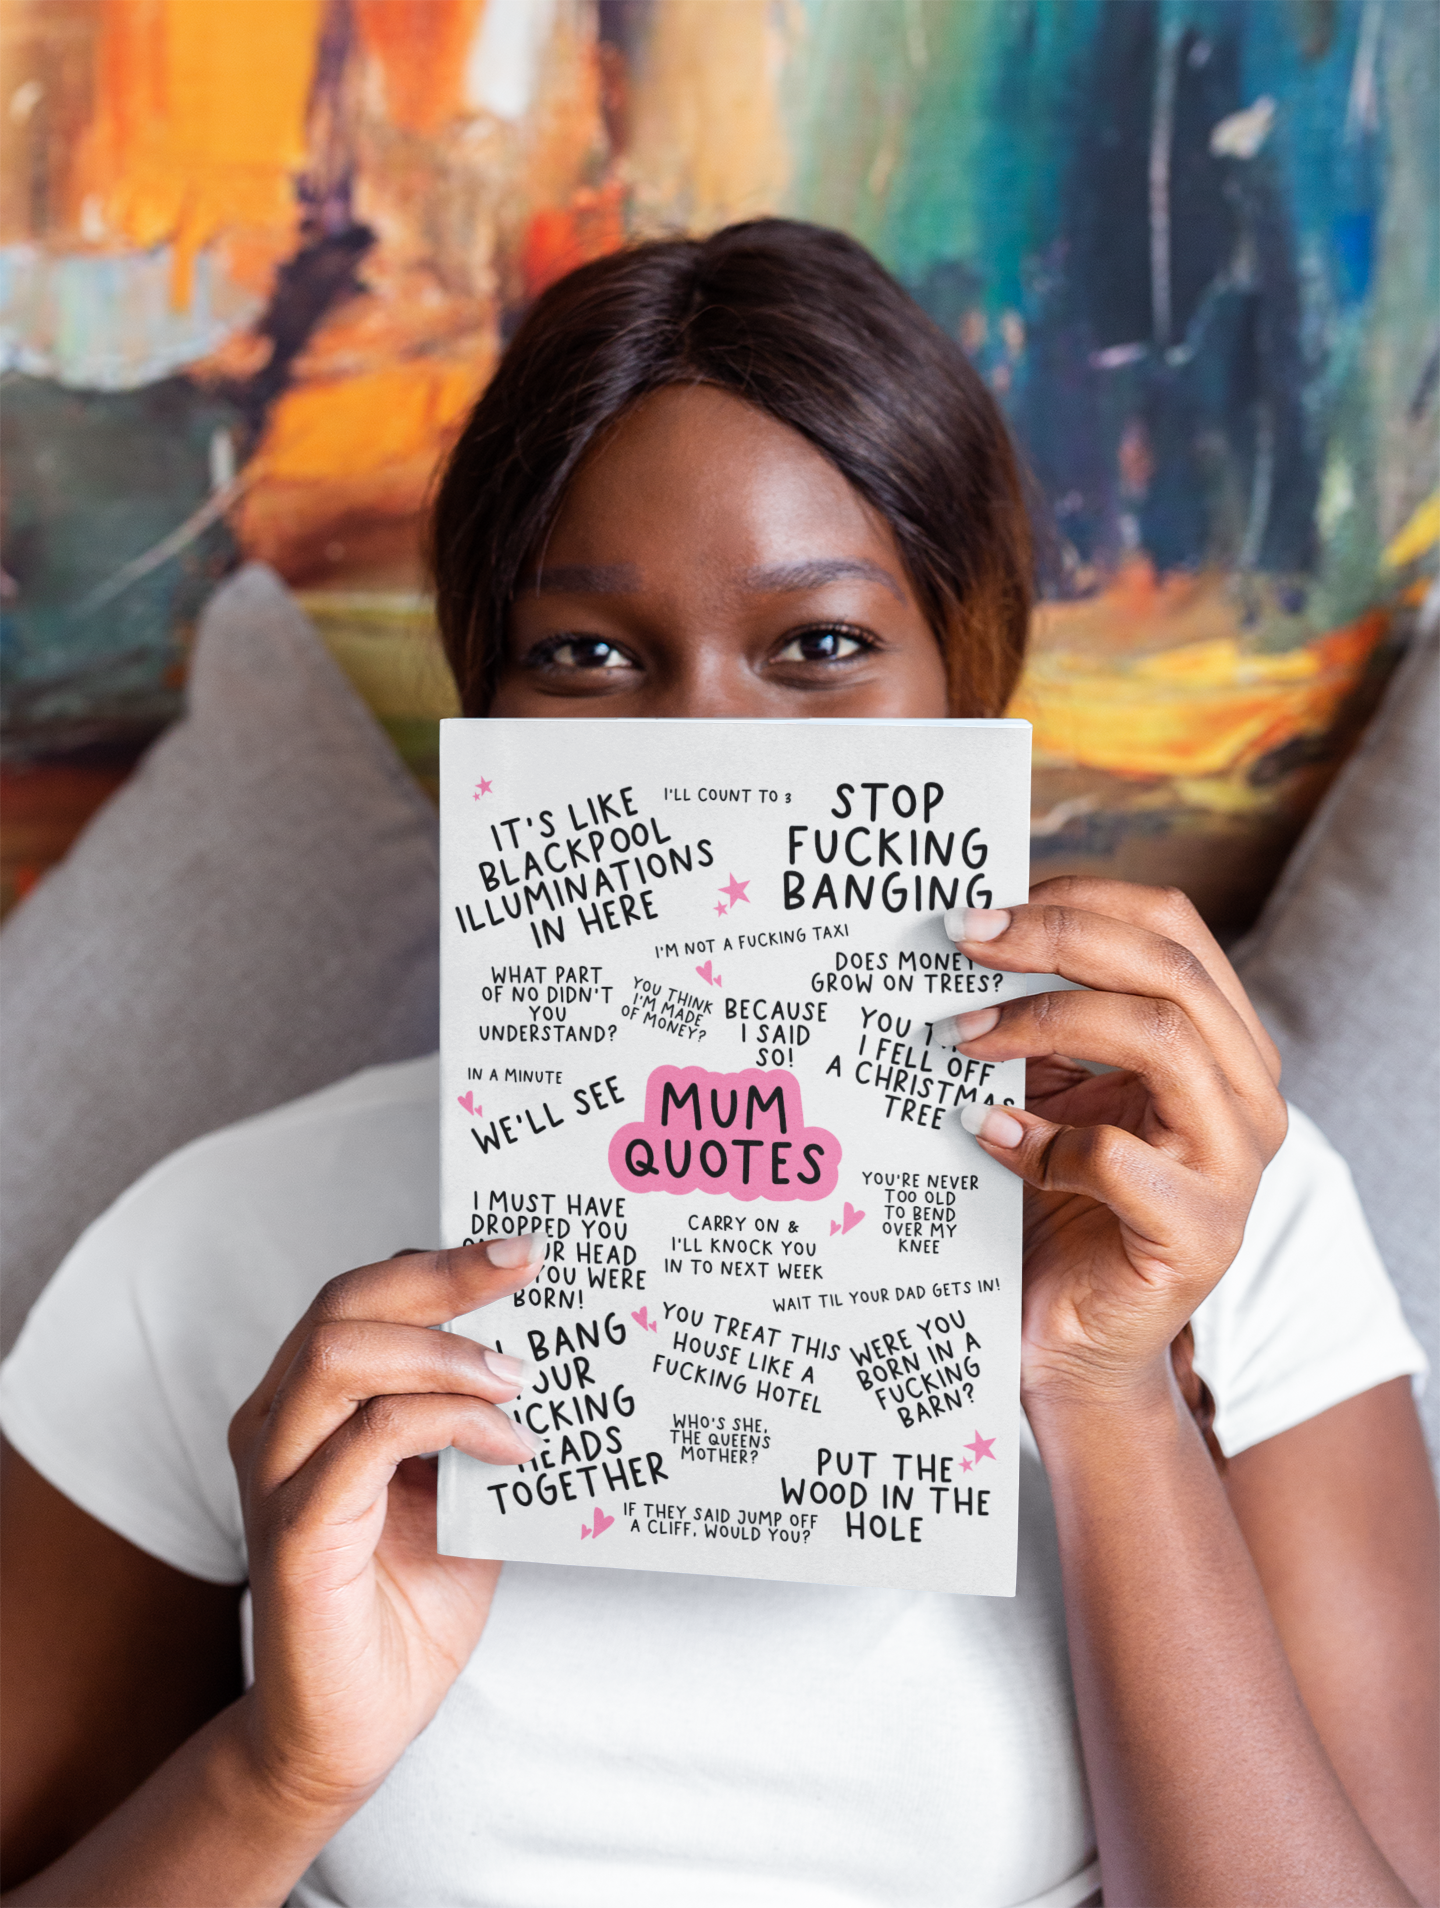 IT'S LIKE
BLACKPOOL
ILLUMINATIONS
IN HERE
I'LL COUNT TO 3
STOP
FUCKING
BANGING
I'M NOT A FUCKING TAXI
DOES MONEY
GROW ON TREES?
WHAT PART
OF NO DIDN'T
YOU
UNDERSTAND?
YOU THINK
I'M MADE
OF MONEY?
BECAUSE
I SAID
SO!
YOU
I FELL OFF
A CHRISTMAS
TREE
IN A MINUTE
WE'LL SEE
MUM
QUOTES
I MUST HAVE
DROPPED YOU
HEAD
YOU WERE
BORN!
CARRY ON &
I'LL KNOCK YOU
IN TO NEXT WEEK
YOU'RE NEVER
TOO OLD
TO BEND
OVER MY
KNEE
WAIT TIL YOUR DAD GETS IN!
BANG
TOGETHER
YOU TREAT THIS
HOUSE LIKE A
FUCKING HOTEL
WERE YOU
BORN IN A
FUCKING
BARN?
WHO'S SHE,
THE QUEENS
MOTHER?
PUT THE
WOOD IN THE
HOLE
IF THEY SAID JUMP OFF
A CLIFF, WOULD YOU?